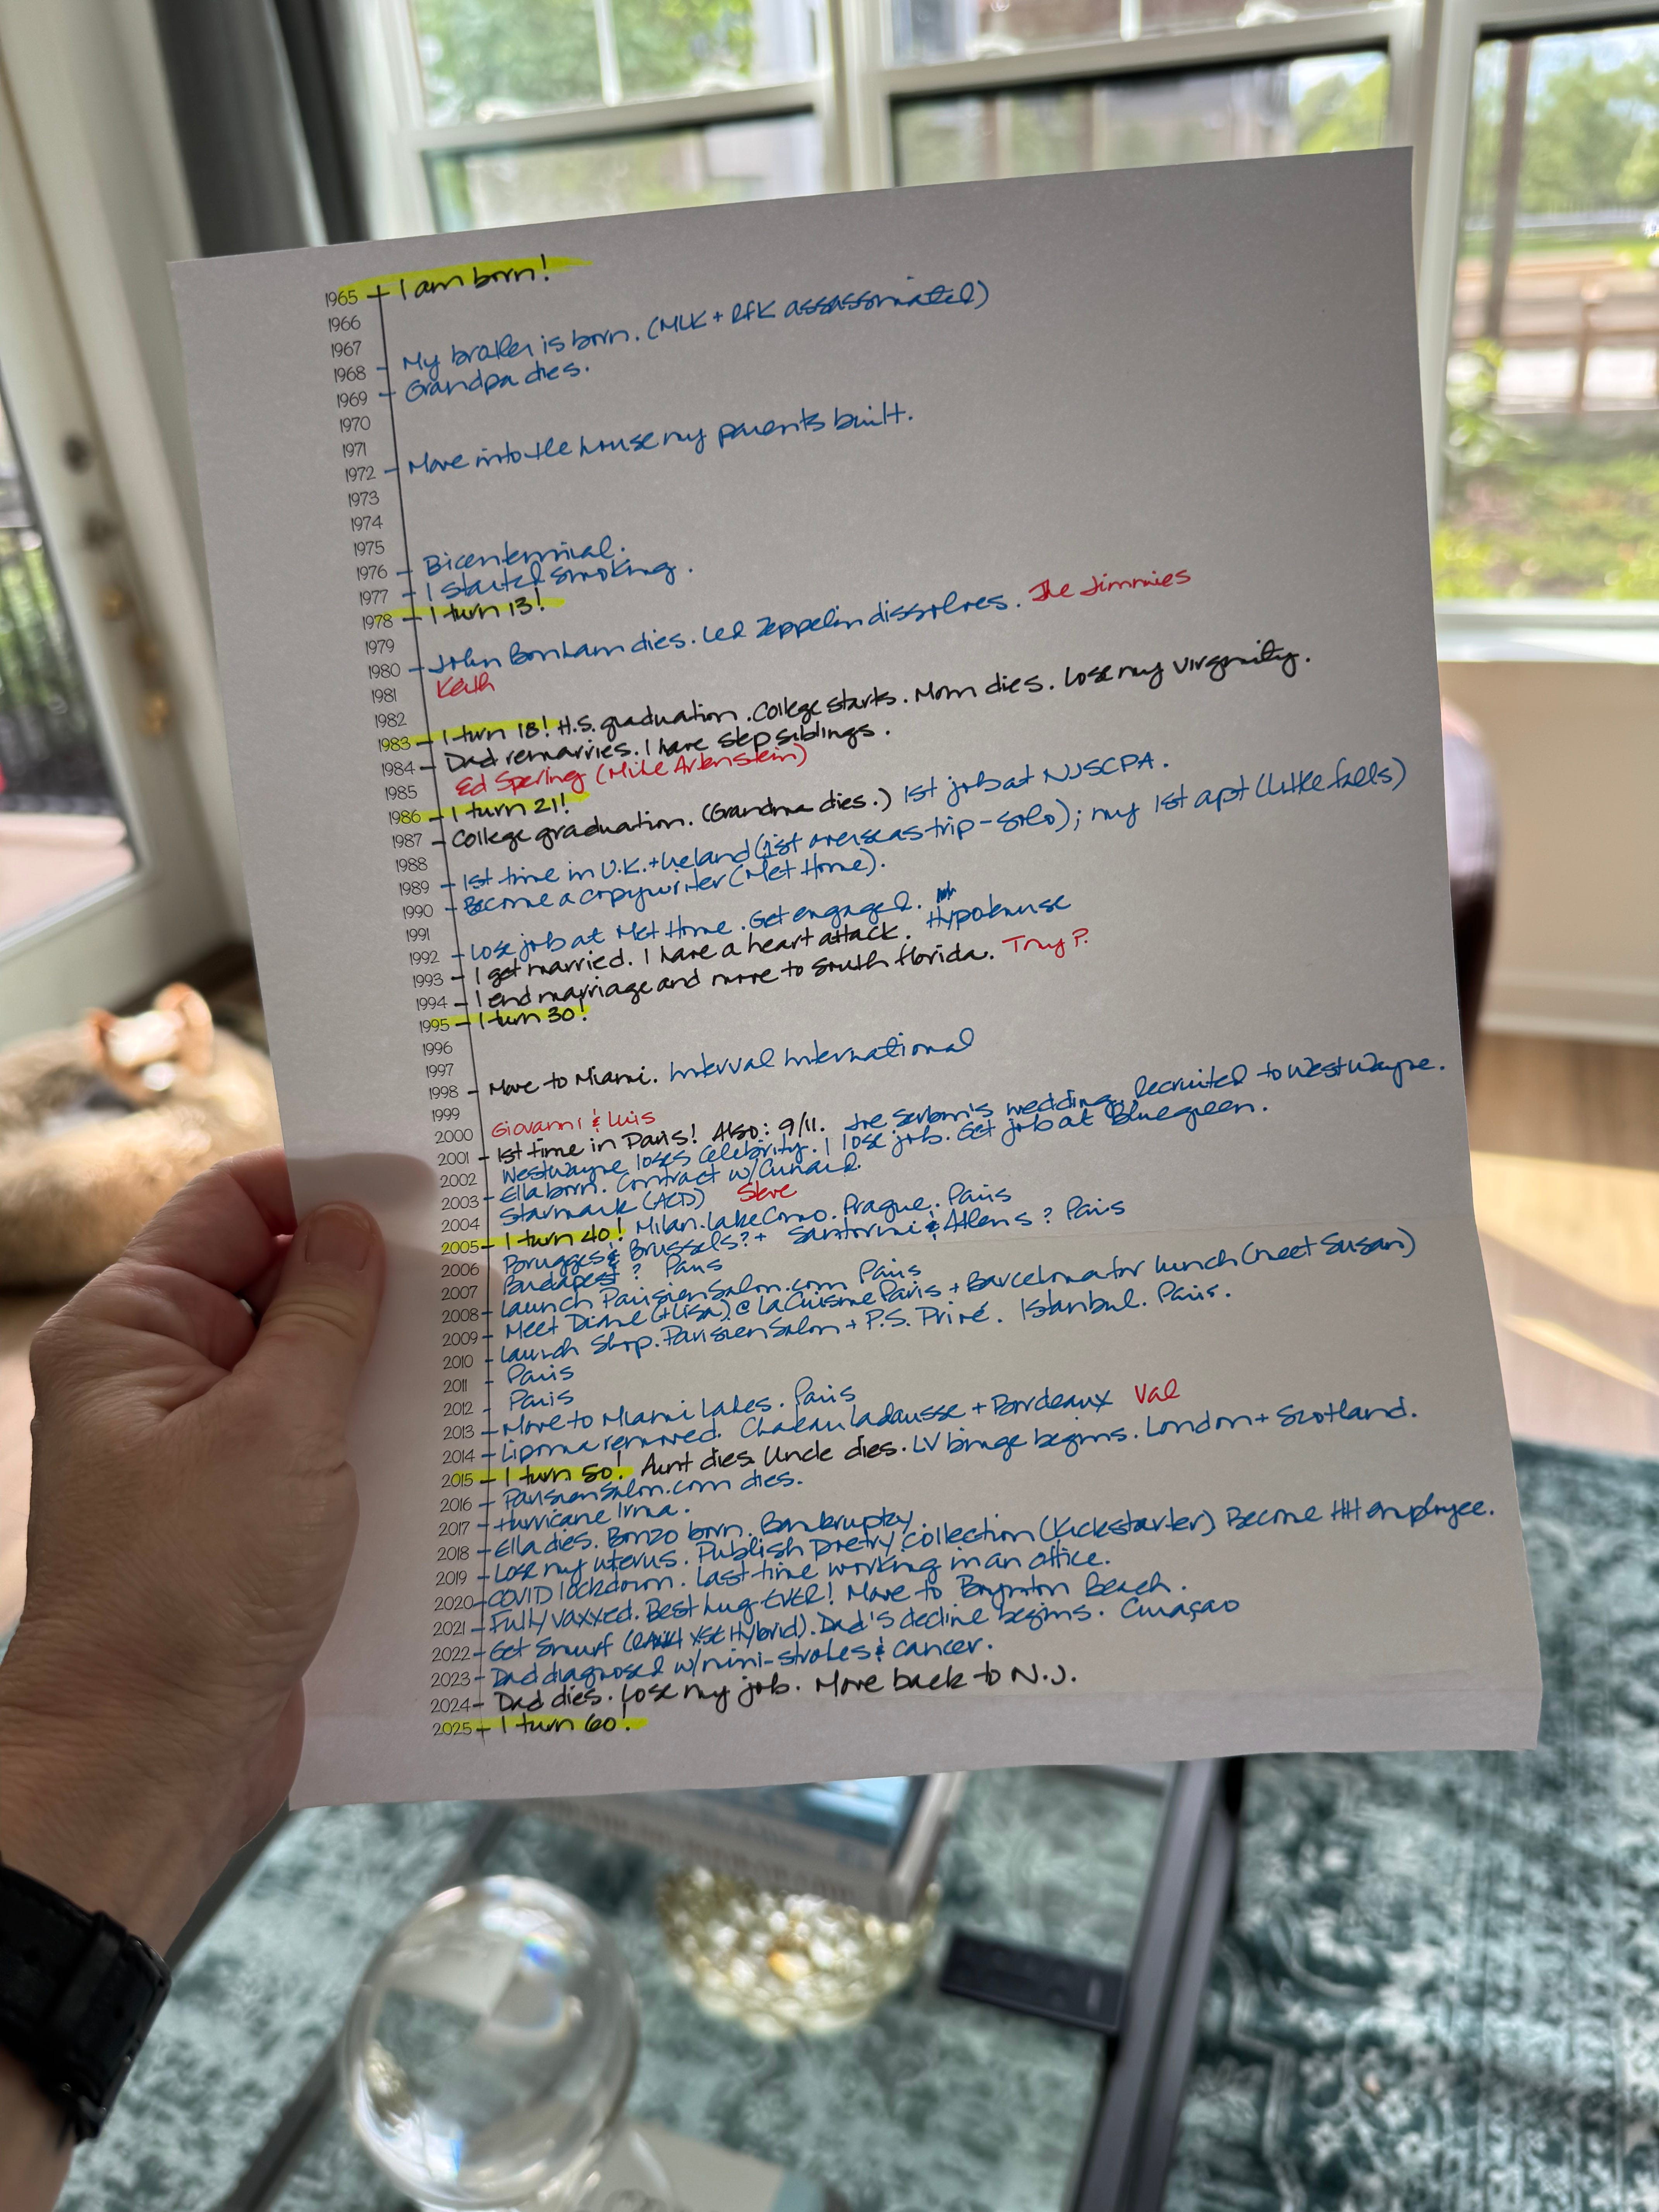 1965 I am born!
1966
1967
1968 My brother is born. (MLK + RFK assassinated)
1969 Grandpa dies.
1970
1971
1972 Move into the house my parents built.
1973
1974
1975
1976 Bicentennial.
1977 I started smoking.
1978 I turn 13!
1979
1980 John Bonham dies. Led Zeppelin dissolves. The Jimmies
1981 Keith
1982
1983 I turn 18! H.S. graduation. College starts. Mom dies. Lose my virginity.
1984 Dad remarries. I have step siblings.
1985 Ed Spering (Mike Arkenstein)
1986 I turn 21!
1987 College graduation. (Grandma dies.) 1st job at NJSCPA.
1988
1989 1st time in U.K. + Ireland (1st overseas trip - solo); my 1st apt (Little Falls)
1990 Become a copywriter (Met Home).
1991
1992 Lose job at Met Home. Get engaged.
1993 I get married. I have a heart attack. Hypotenuse
1994 I end marriage and move to South Florida. Tony P.
1995 I turn 30!
1996
1997
1998 Move to Miami. Interval International
1999
2000 Giovanni & Luis
2001 1st time in Paris! Also: 9/11. Joe Serbin's wedding. Recruited to WestWayne.
2002 WestWayne loses Celebrity. I lose job. Get job at Bluegreen.
2003 Ella born. Contract w/Cunard.
2004 Starmark (ACD) Steve
2005 I turn 40! Milan. Lake Como. Prague. Paris
2006 Brugges & Brussels? + Santorini & Athens? Paris
2007 Budapest? Paris
2008 Launch ParisienSalon.com Paris
2009 Meet Diane (+Lisa) @ La Cuisine Paris + Barcelona for lunch (meet Susan)
2010 Launch Shop.ParisienSalon + P.S. Privé. Istanbul. Paris.
2011 Paris
2012 Paris
2013 Move to Miami Lakes. Paris
2014 Lipoma removed. Chateau Ladausse + Bordeaux Val
2015 I turn 50! Aunt dies. Uncle dies. LV binge begins. London + Scotland.
2016 ParisienSalon.com dies.
2017 Hurricane Irma.
2018 Ella dies. Bonzo born. Bankruptcy.
2019 Lose my uterus. Publish poetry collection (Kickstarter) Become HH employee.
2020 COVID lockdown. Last time working in an office.
2021 Fully vaxxed. Best hug EVER! Move to Boynton Beach.
2022 Get Smurf (XSE Hybrid). Dad's decline begins. Curaçao
2023 Dad diagnosed w/mini-strokes & cancer.
2024 Dad dies. Lose my job. Move back to N.J.
2025 I turn 60!